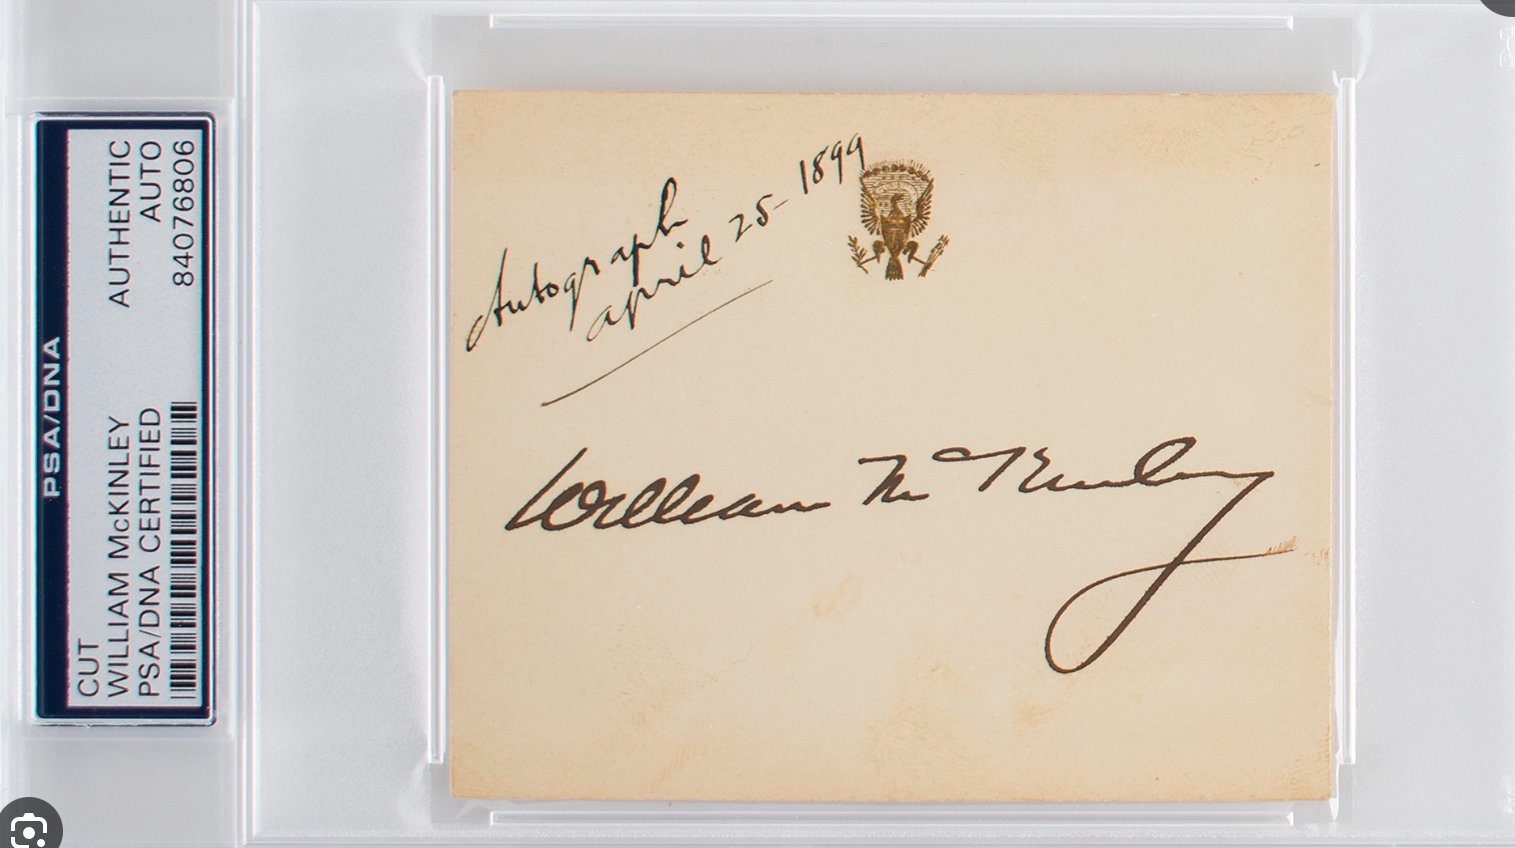 PSA/DNA
CUT
WILLIAM McKINLEY
PSA/DNA CERTIFIED
AUTHENTIC
AUTO
84076806
Autograph
april 25 - 1899
William McKinley